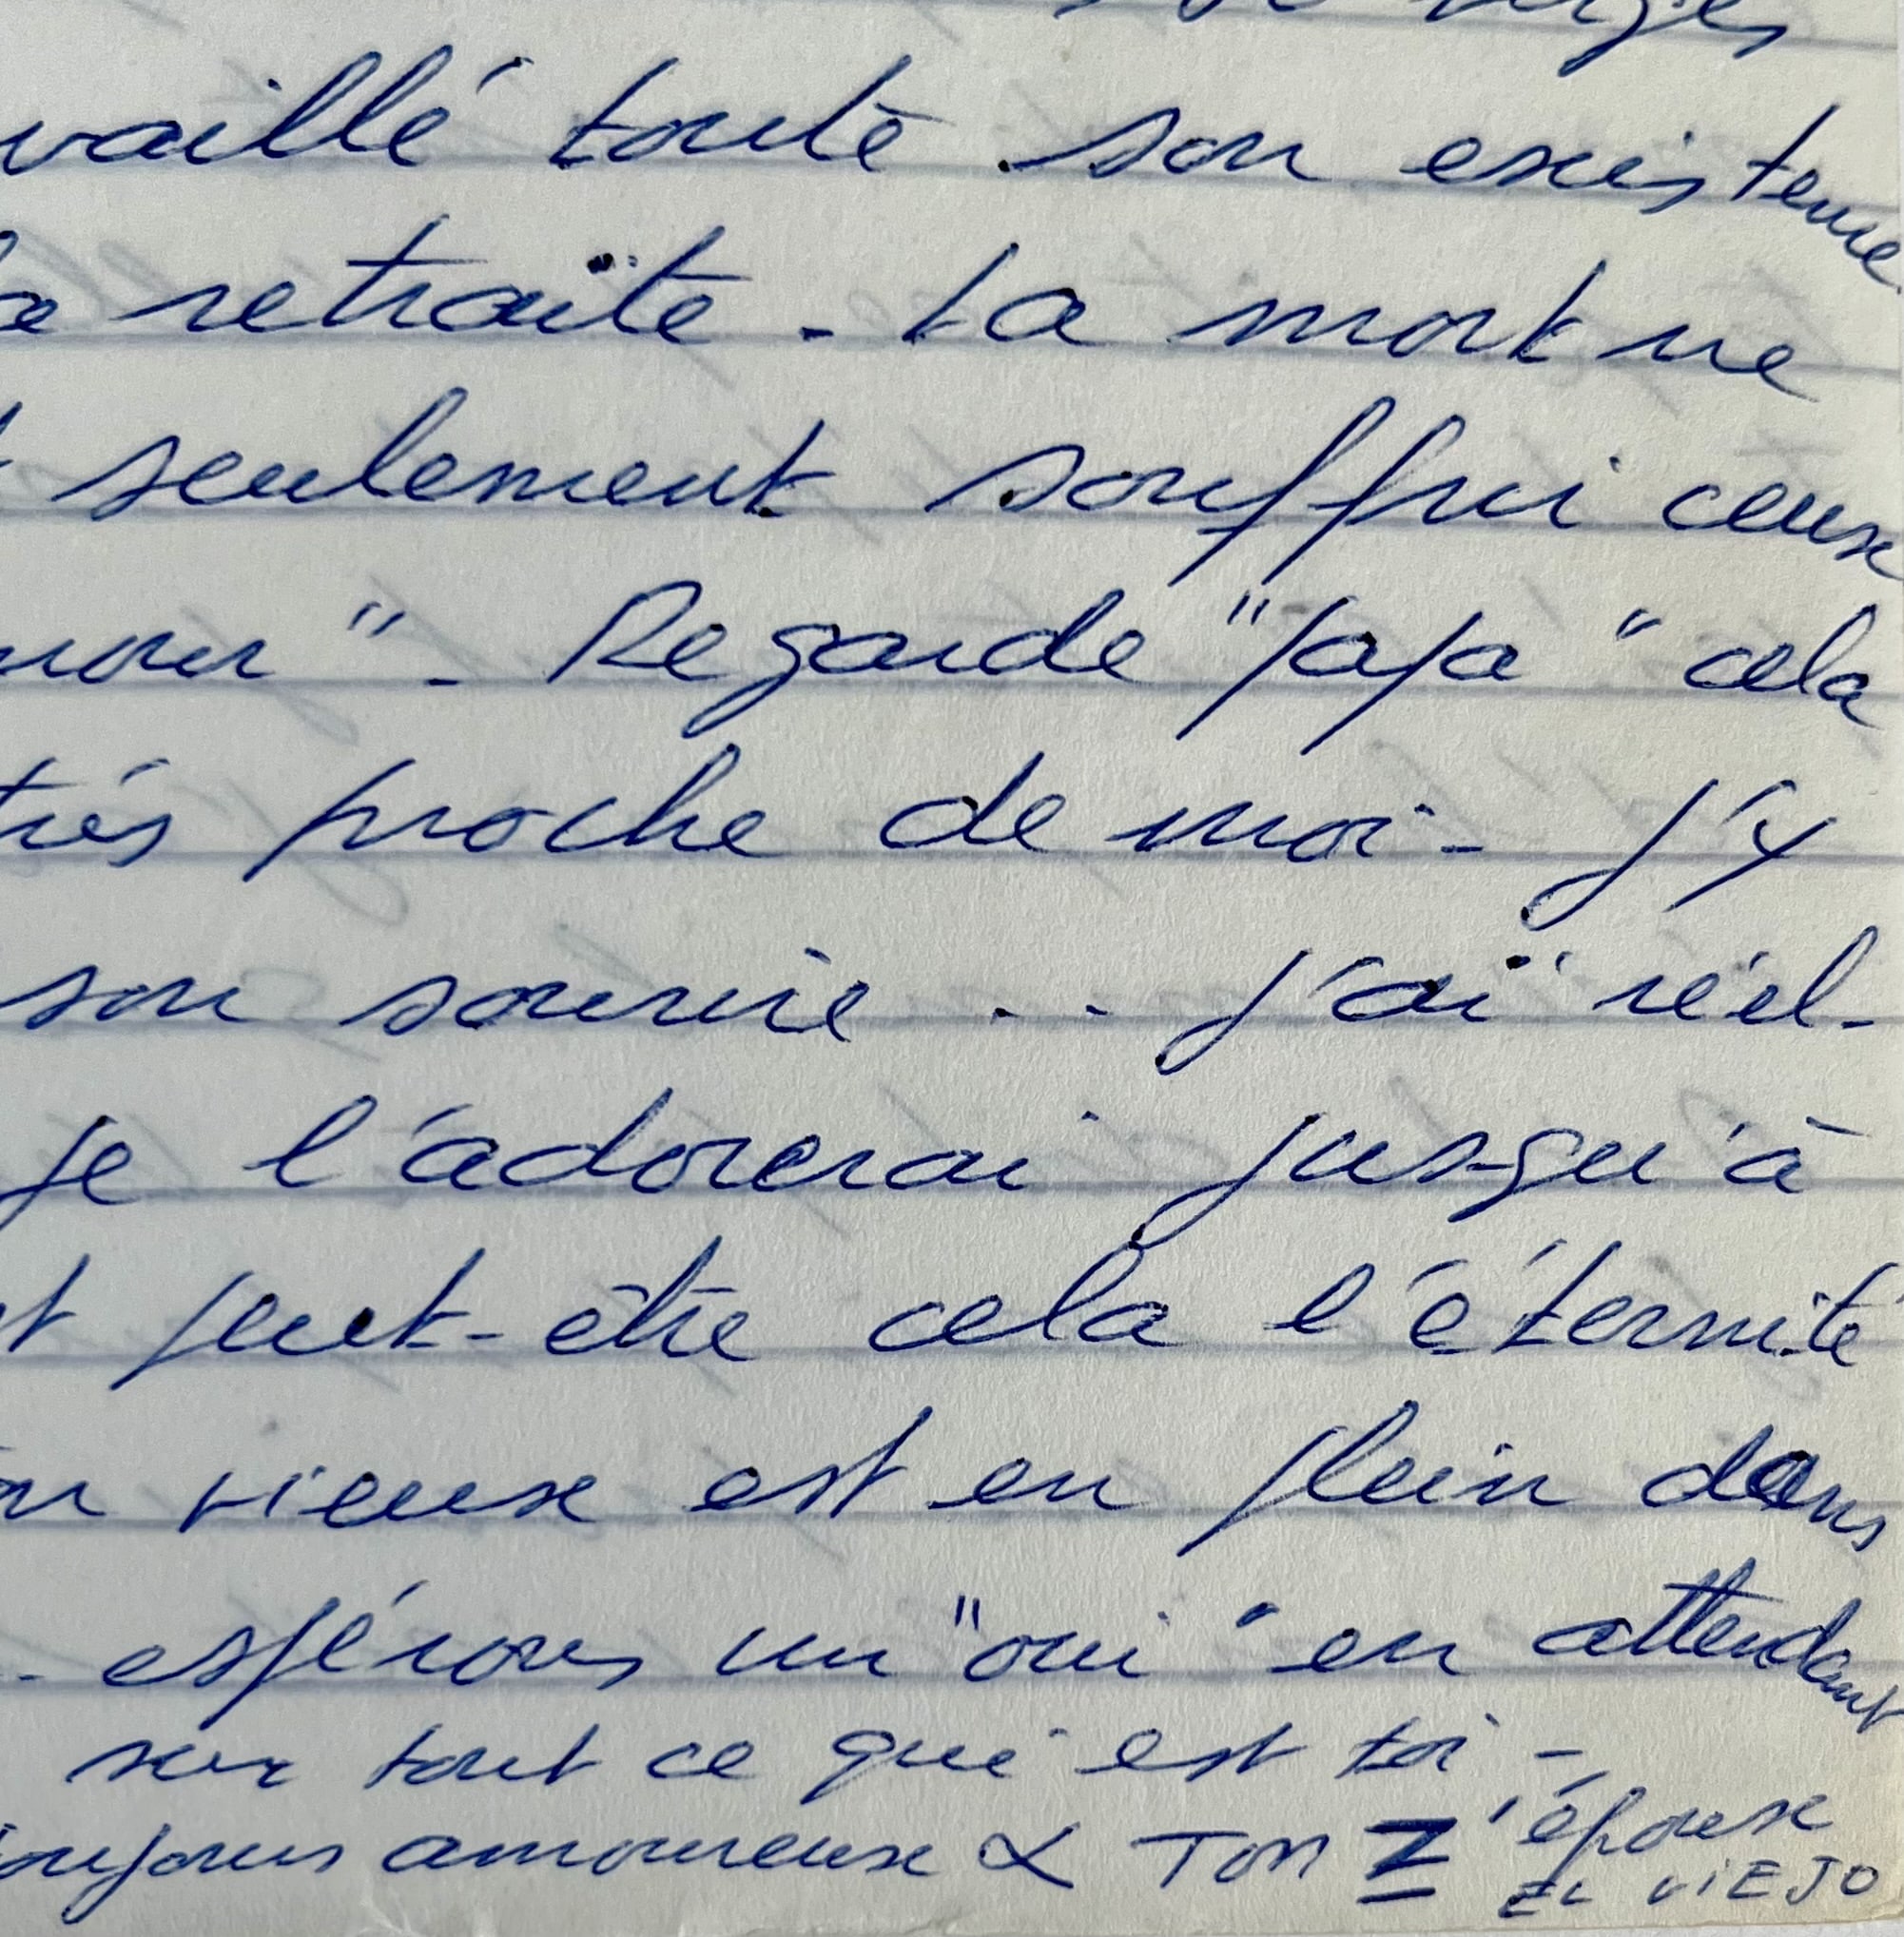 vaillé toute son existence
la retraite - La mort ne
seulement souffrir ceux
mour" - Regarde "papa" cela
très proche de moi - J'y
son sourire ... j'ai réel-
je l'adorerai jusqu'à
t peut-être cela l'éternité
on vieux est en plein dans
- espérons un "oui" en attendant
sur tout ce qui est toi -
oujours amoureux & Ton Z 'époux
EL VIEJO